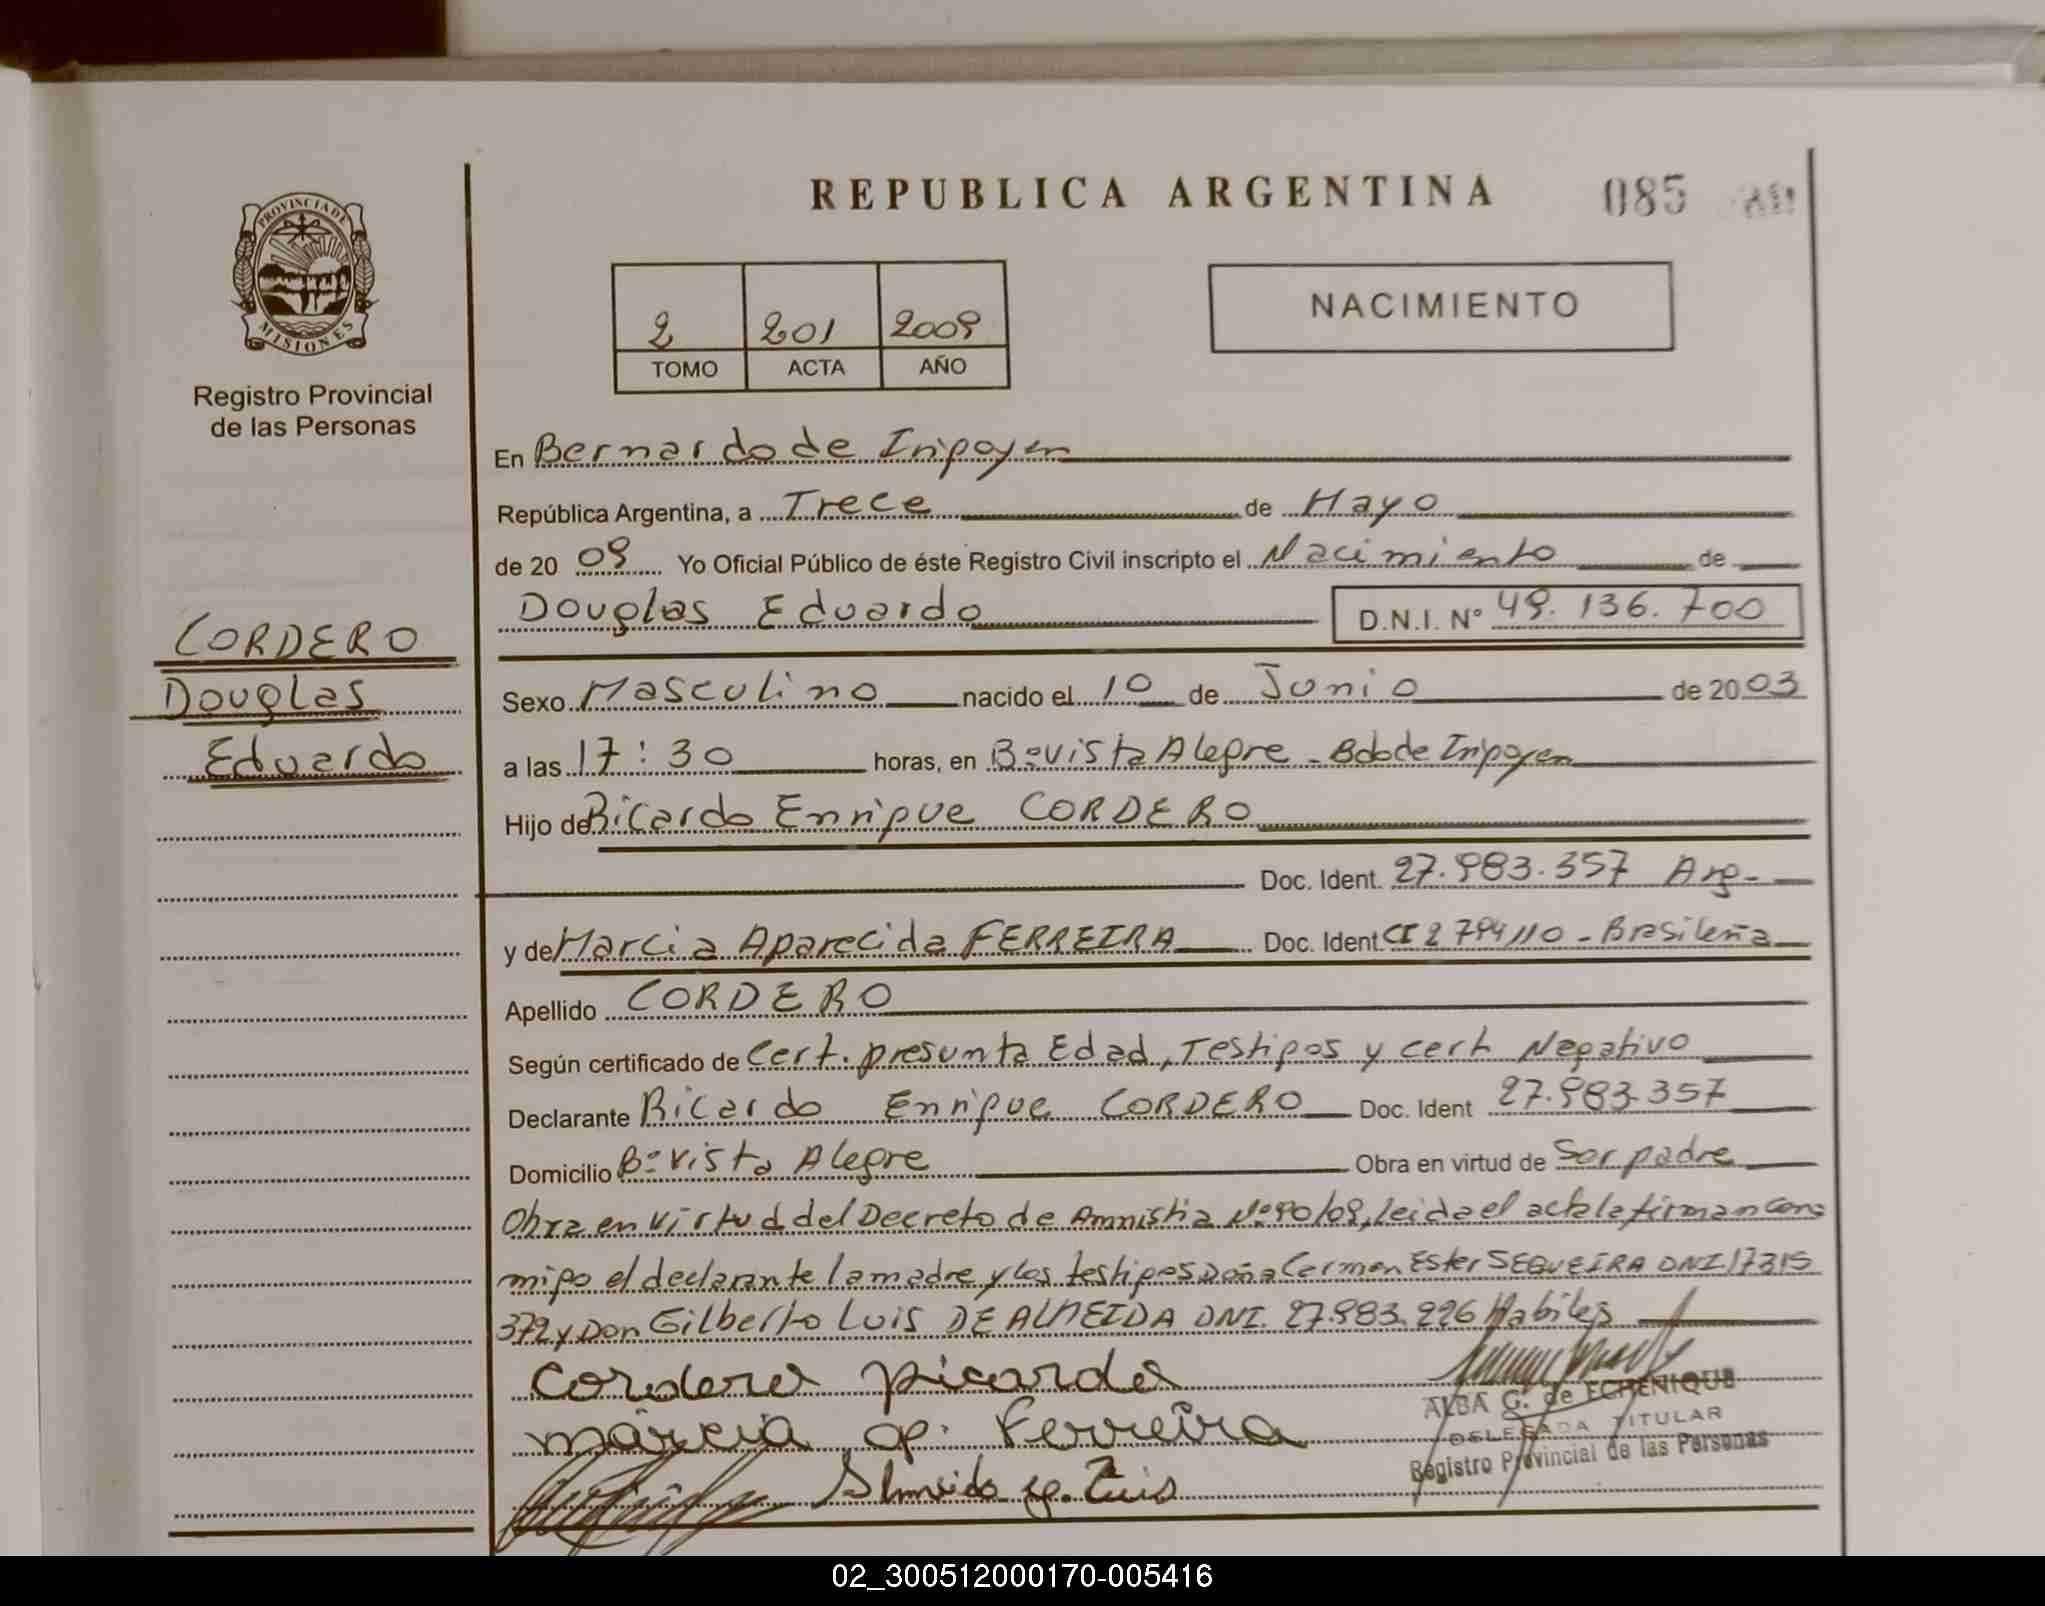 REPUBLICA ARGENTINA 085
PROVINCIA DE
MISIONES
Registro Provincial
de las Personas
2 201 2009
TOMO ACTA AÑO
NACIMIENTO
En Bernardo de Irigoyen
República Argentina, a Trece de Mayo
de 20 09 Yo Oficial Público de éste Registro Civil inscripto el Nacimiento de
Douglas Eduardo D.N.I. Nº 49.136.700
CORDERO
Douglas
Eduardo
Sexo Masculino nacido el 10 de Junio de 2003
a las 17:30 horas, en Bº Vista Alegre - Bdo de Irigoyen
Hijo de Ricardo Enrique CORDERO
Doc. Ident. 27.983.357 Arg.
y de Marcia Aparecida FERREIRA Doc. Ident CI 2794110 - Brasileña
Apellido CORDERO
Según certificado de Cert. presunta Edad, Testigos y cert Negativo
Declarante Ricardo Enrique CORDERO Doc. Ident 27.983.357
Domicilio Bº Vista Alegre Obra en virtud de Ser padre
Obra en virtud del Decreto de Amnistia Nº 90/09, leida el acta la firman con
migo el declarante la madre y los testigos Doña Carmen Ester SEQUEIRA DNI 17315
372 y Don Gilberto Luis DE ALMEIDA DNI. 27.983.226 Habiles
Cordero Ricardo
marcia ap. Ferreira
Almeida g. Luis
ALBA G. de ECHENIQUE
DELEGADA TITULAR
Registro Provincial de las Personas
02_300512000170-005416